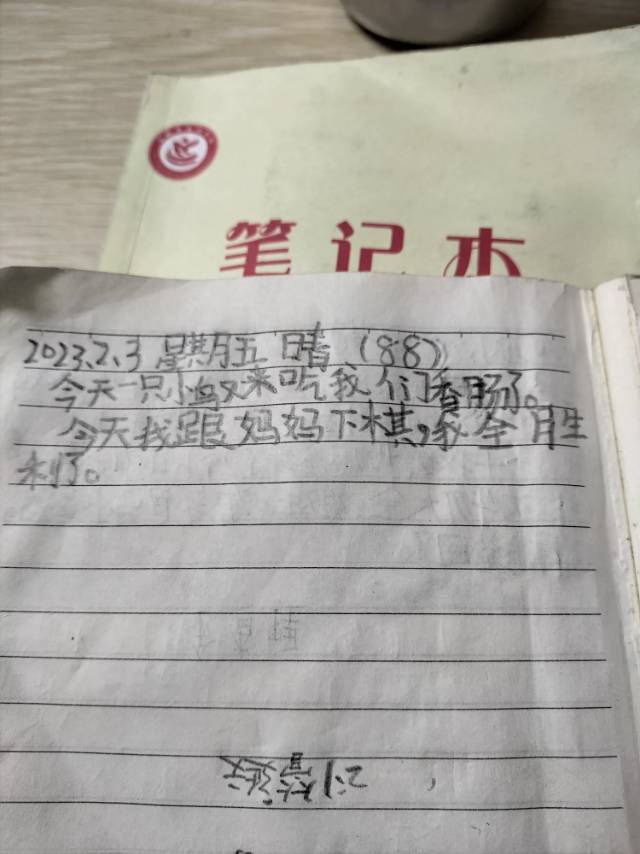 笔记本
2023.2.3 星期五 晴 (88)
今天一只小鸟又来吃我们香肠了。
今天我跟妈妈下棋,我全胜
利了。